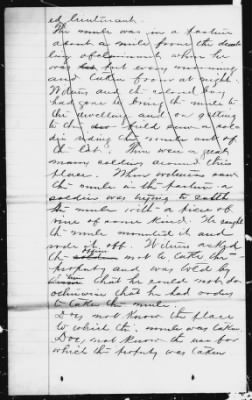 ed lieutenant.
The mule was in a pasture
about a mile from the dwel
ling of claimant, where he
was put every morning
and taken from at night.
Witness and the colored boy
had gone to bring the mule to
the dwelling and on getting
to the field saw a sol
dier riding the mule out of
the lot. There were a great
many soldiers around this
place. When witness saw
the mule in the pasture a
soldier was trying to catch
the mule with a piece of
vine of some kind. He caught
the mule mounted it and
rode it off. Witness asked
the officer not to take the
property and was told by
him that he could not do
otherwise that he had orders
to take the mule.
Does not know the place
to which the mule was taken
Does not know the use for
which the property was taken